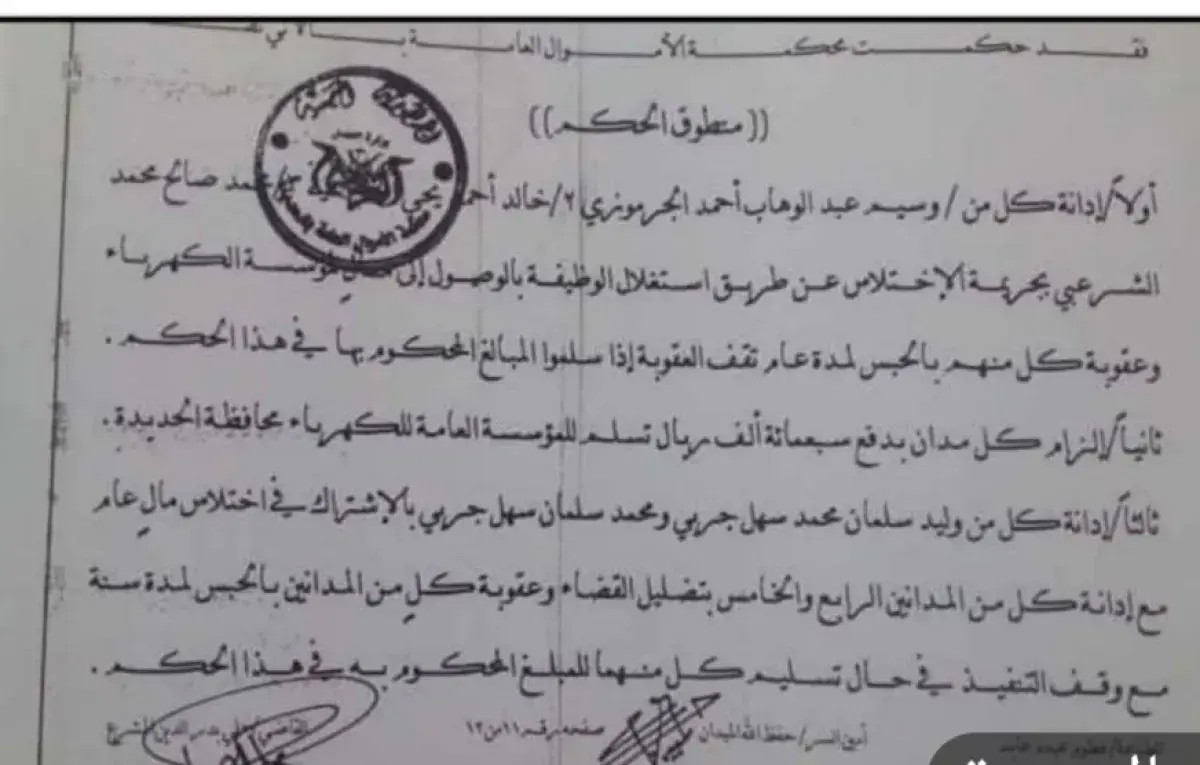 فقد حكمت محكمة الأموال العامة بالآتي
((منطوق الحكم))
أولاً/إدانة كل من / وسيم عبد الوهاب أحمد الجرموزي ٢/خالد أحمد يحيى محمد صالح محمد
الشرعبي بجريمة الإختلاس عن طريق استغلال الوظيفة بالوصول إلى مؤسسة الكهرباء
وعقوبة كل منهم بالحبس لمدة عام تقف العقوبة إذا سلموا المبالغ المحكوم بها في هذا الحكم .
ثانياً/إلزام كل مدان بدفع سبعمائة ألف ريال تسلم للمؤسسة العامة للكهرباء محافظة الحديدة .
ثالثاً/إدانة كل من وليد سلمان محمد سهل جربي ومحمد سلمان سهل جربي بالإشتراك في اختلاس مالٍ عام
مع إدانة كل من المدانين الرابع والخامس بتضليل القضاء وعقوبة كلٍ من المدانين بالحبس لمدة سنة
مع وقف التنفيذ في حال تسليم كل منهما للمبلغ المحكوم به في هذا الحكم .
أمين السر/حفظ الله الميدان صفحة رقم ١١ من ١٢ القاضي
الجمهورية اليمنية